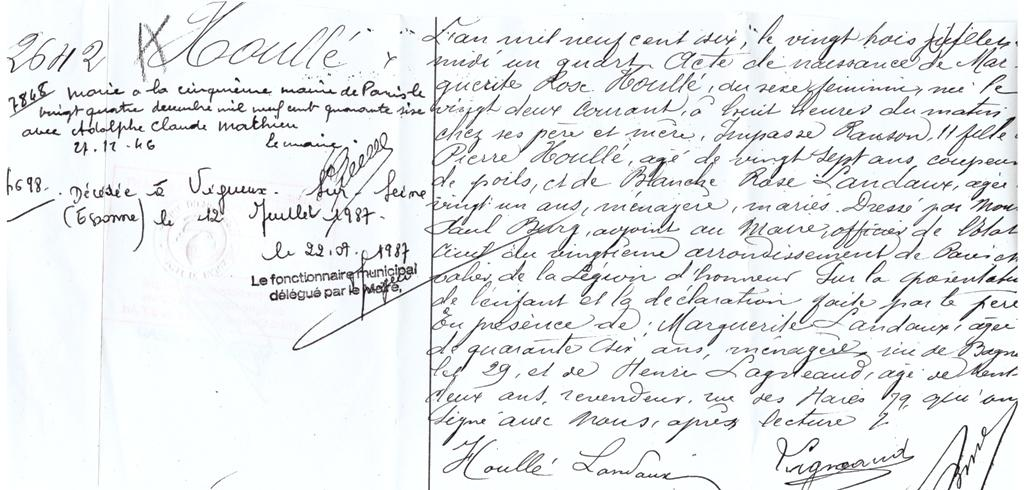 2642 Houllé
7848 mariée à la cinquième mairie de Paris le
vingt quatre decembre mil neuf cent quarante six
avec Adolphe Claude Mathieu
27.12.46 le maire
Décédée à Vigneux-sur-Seine
(Essonne) le 12 Juillet 1987.
le 22. 1987
Le fonctionnaire municipal
délégué par le Maire,
L'an mil neuf cent six, le vingt trois juillet
midi un quart Acte de naissance de Mar-
guerite Rose Houllé, du sexe féminin, née le
vingt deux courant, à huit heures du matin
chez ses père et mère, Impasse Ranson, 11 fille
Pierre Houllé, agé de vingt sept ans, coupeur
de poils, et de Blanche Rose Landaux, agée
vingt un ans, ménagère, mariés. Dressé par Nous
Paul Burg, adjoint au Maire, officier de l'état
civil du vingtième arrondissement de Paris
de la Légion d'honneur Sur la présentation
de l'enfant et la déclaration faite par le père
En présence de: Marguerite Landaux, agée
de quarante six ans, ménagère, rue de Bagno
let 29, et de Henri Lagneaud, agé de trent
deux ans, revendeur, rue des Haies 79, qui on
signé avec Nous, après lecture
Houllé Landaux Lagneaud